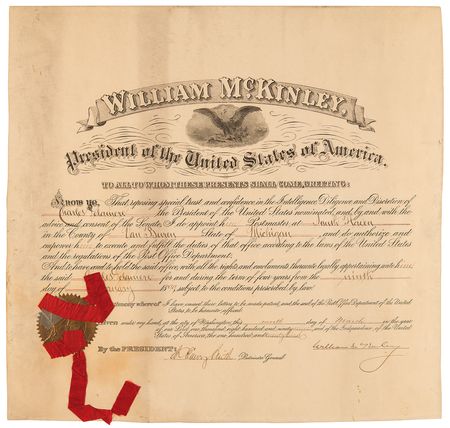 WILLIAM McKINLEY,
President of the United States of America,
TO ALL TO WHOM THESE PRESENTS SHALL COME, GREETING:
Know ye, That reposing special trust and confidence in the Intelligence, Diligence and Discretion of
Charles the President of the United States nominated, and by and with the
advice and consent of the Senate I do appoint him Postmaster at South Haven
in the County of Van Buren State of Michigan and do authorize and
empower him to execute and fulfil the duties of that office according to the laws of the United States
and the regulations of the Post Office Department:
And to have and to hold the said office, with all the rights and emoluments thereunto legally appertaining unto him
the said for and during the term of four years from the ninth
day of subject to the conditions prescribed by law.
In testimony whereof I have caused these letters to be made patent, and the seal of the Post Office Department of the United
States to be hereunto affixed.
Given under my hand, at the city of Washington, this ninth day of March in the year
of our Lord one thousand eight hundred and ninety and of the Independence of the United
States of America, the one hundred and
By the PRESIDENT:
William McKinley
Postmaster General